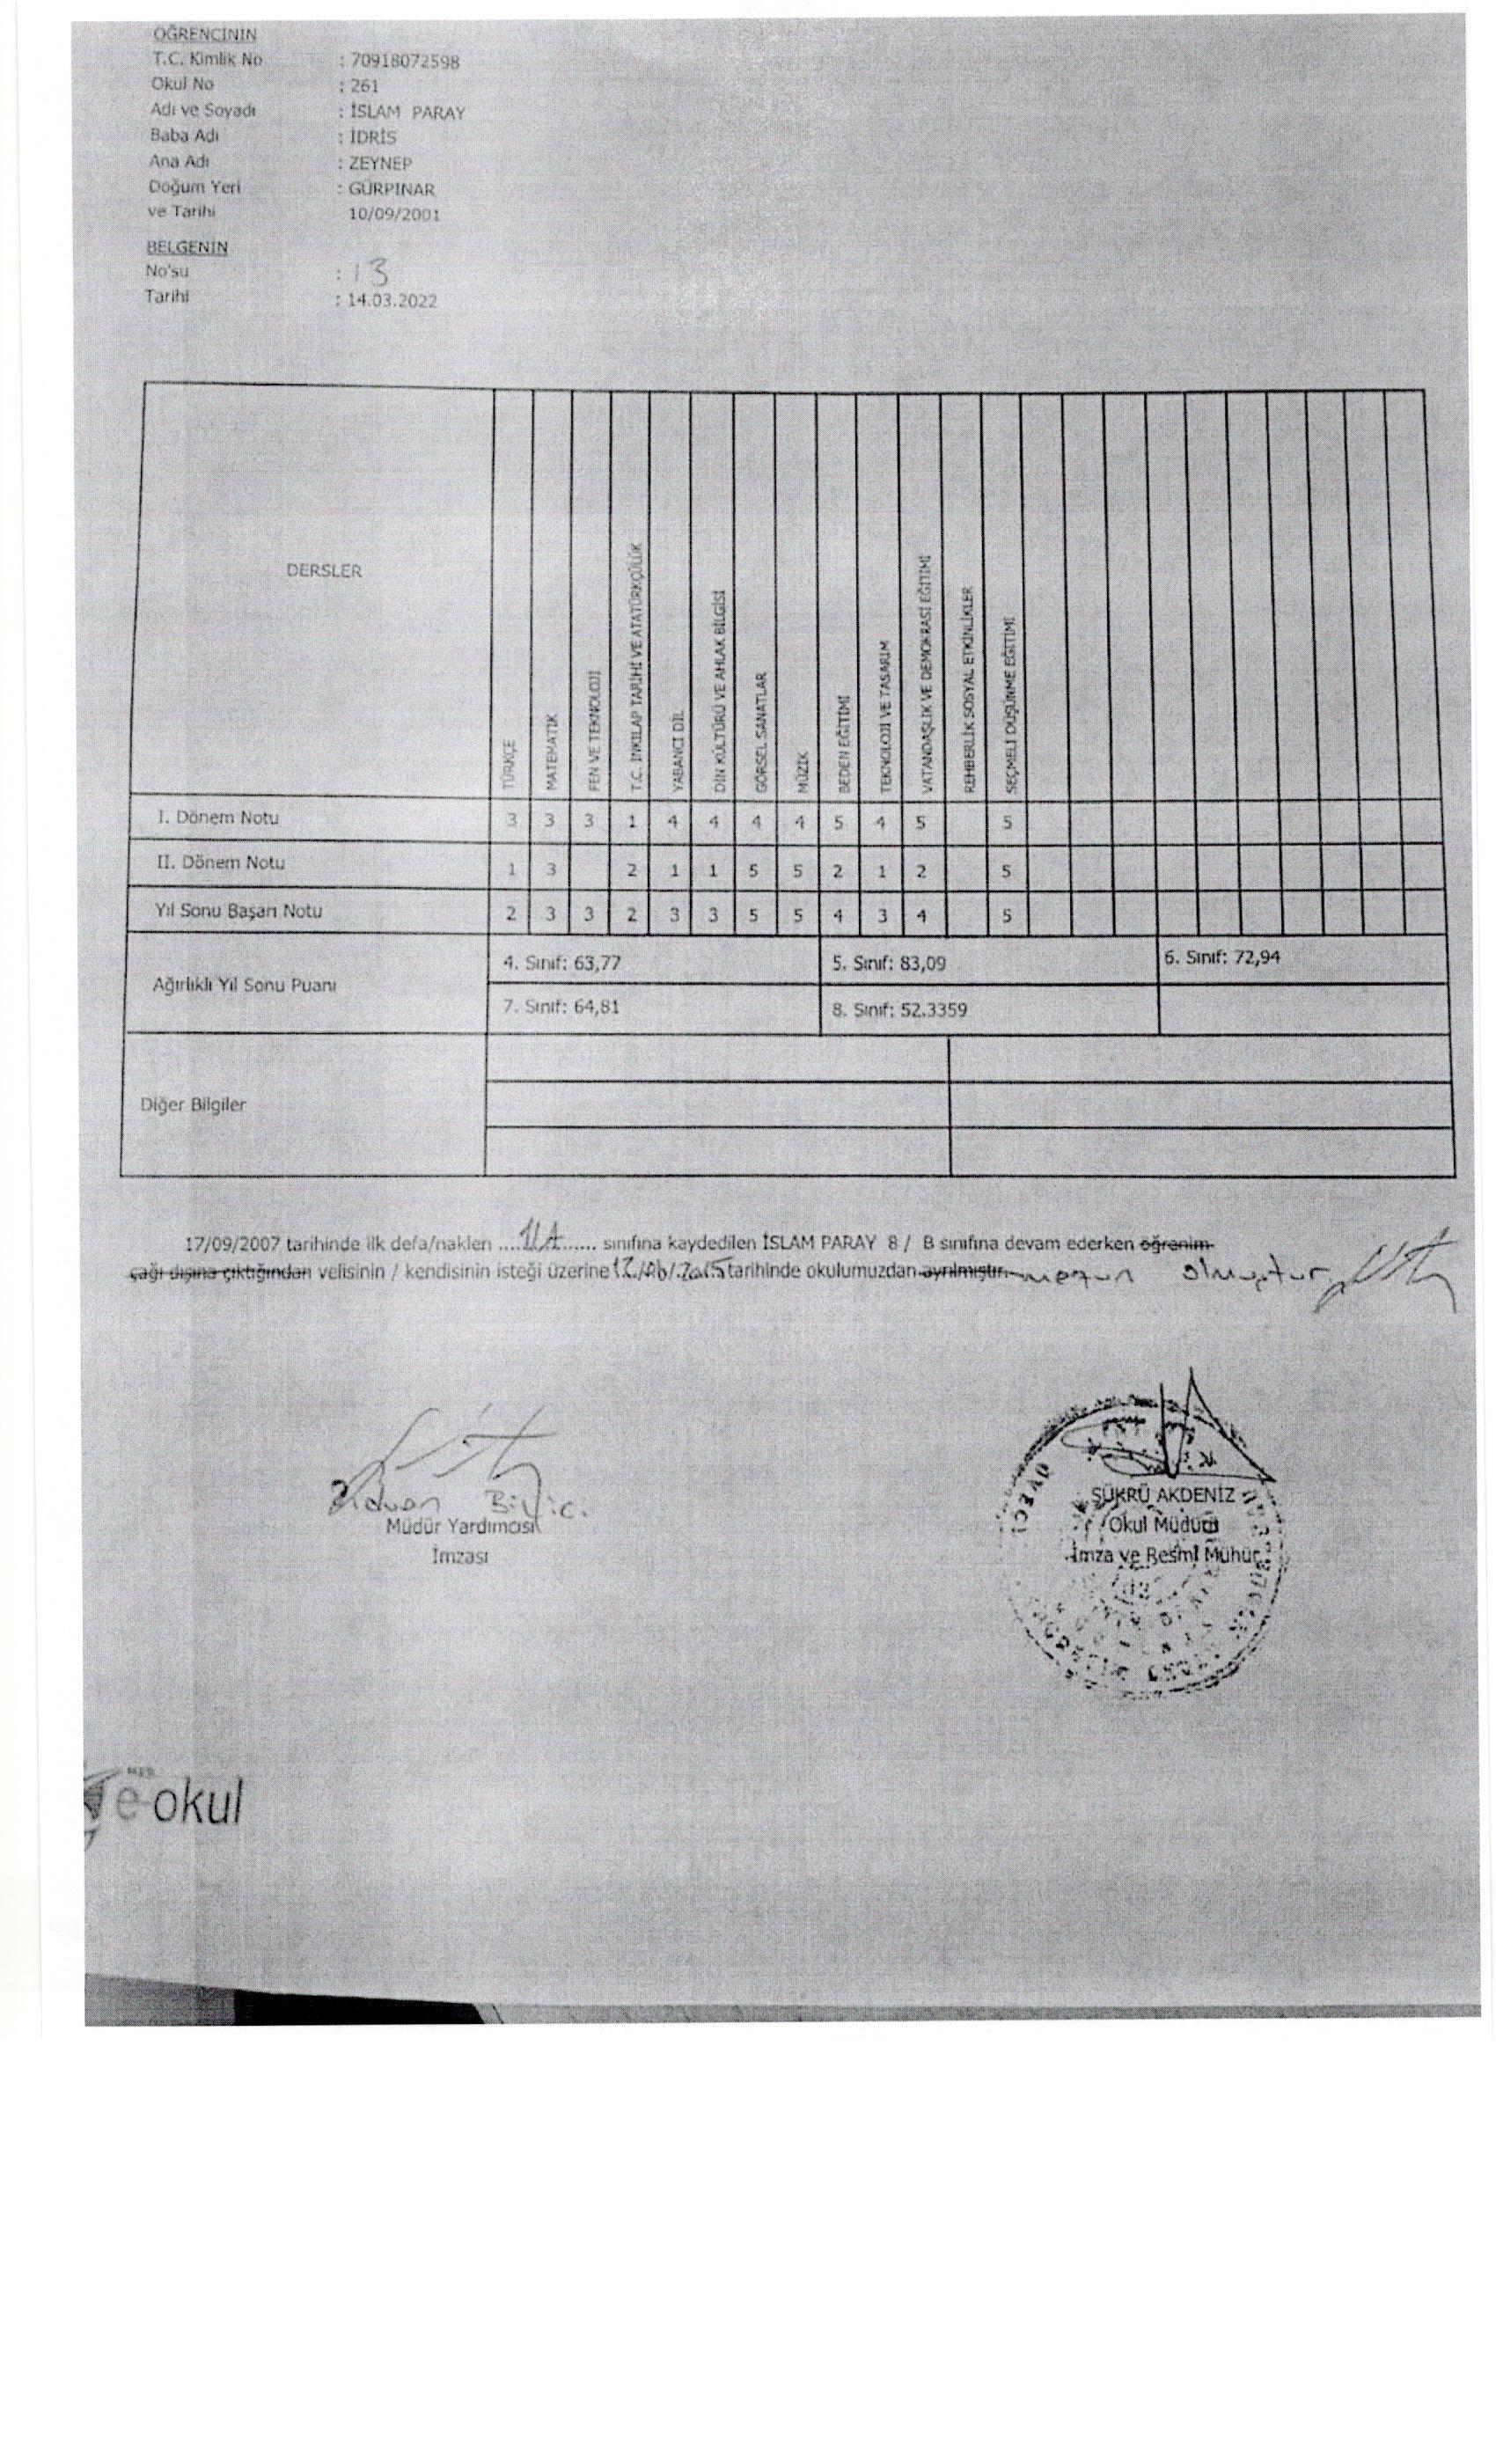 ÖĞRENCİNİN
T.C. Kimlik No : 70918072598
Okul No : 261
Adı ve Soyadı : İSLAM PARAY
Baba Adı : İDRİS
Ana Adı : ZEYNEP
Doğum Yeri : GÜRPINAR
ve Tarihi 10/09/2001
BELGENİN
No'su : 13
Tarihi : 14.03.2022
DERSLER
TÜRKÇE
MATEMATİK
FEN VE TEKNOLOJİ
T.C. İNKILAP TARİHİ VE ATATÜRKÇÜLÜK
YABANCI DİL
DİN KÜLTÜRÜ VE AHLAK BİLGİSİ
GÖRSEL SANATLAR
MÜZİK
BEDEN EĞİTİMİ
TEKNOLOJİ VE TASARIM
VATANDAŞLIK VE DEMOKRASİ EĞİTİMİ
REHBERLİK SOSYAL ETKİNLİKLER
SEÇMELİ DÜŞÜNME EĞİTİMİ
I. Dönem Notu 3 3 3 1 4 4 4 4 5 4 5 5
II. Dönem Notu 1 3 2 1 1 5 5 2 1 2 5
Yıl Sonu Başarı Notu 2 3 3 2 3 3 5 5 4 3 4 5
Ağırlıklı Yıl Sonu Puanı
4. Sınıf: 63,77 5. Sınıf: 83,09 6. Sınıf: 72,94
7. Sınıf: 64,81 8. Sınıf: 52.3359
Diğer Bilgiler
17/09/2007 tarihinde ilk defa/naklen ....1/A...... sınıfına kaydedilen İSLAM PARAY 8 / B sınıfına devam ederken öğrenim
çağı dışına çıktığından velisinin / kendisinin isteği üzerine 12/06/2015 tarihinde okulumuzdan ayrılmıştır. mezun olmuştur
Müdür Yardımcısı
İmzası
ŞÜKRÜ AKDENİZ
Okul Müdürü
İmza ve Resmi Mühür
MEB
e-okul